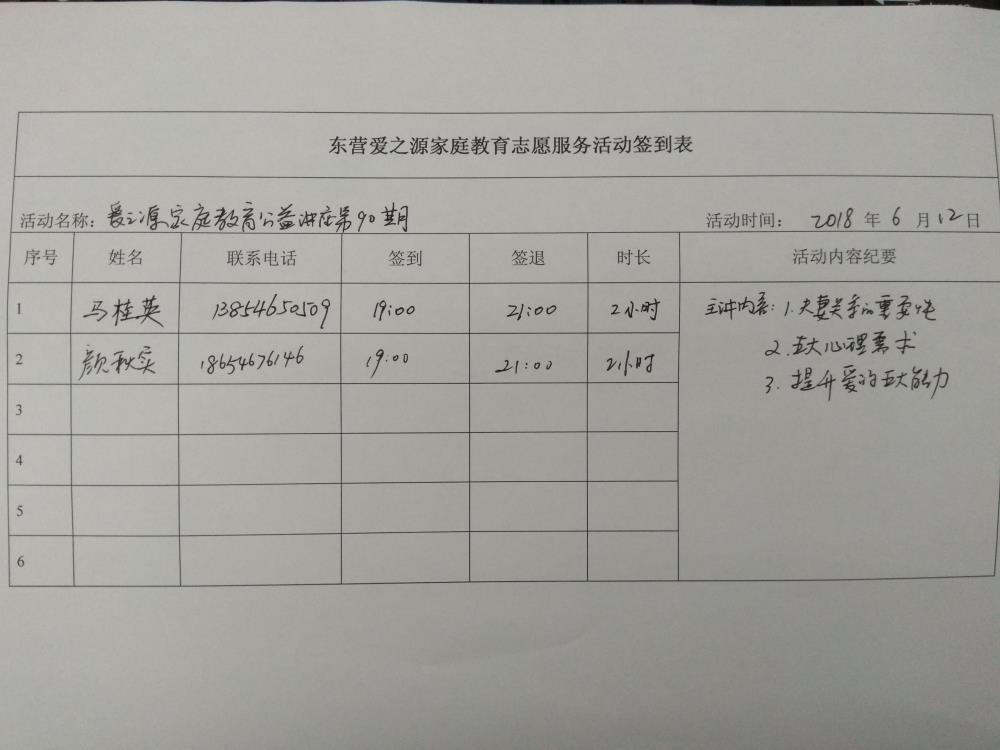 东营爱之源家庭教育志愿服务活动签到表
活动名称：爱之源家庭教育公益讲座第90期 活动时间： 2018 年 6 月 12 日
序号 姓名 联系电话 签到 签退 时长 活动内容纪要
1 马桂英 13854650509 19:00 21:00 2小时 主讲内容：1.夫妻关系的重要性
2 颜秋实 18654676146 19:00 21:00 2小时 2.五大心理需求
3. 提升爱的五大能力
3
4
5
6